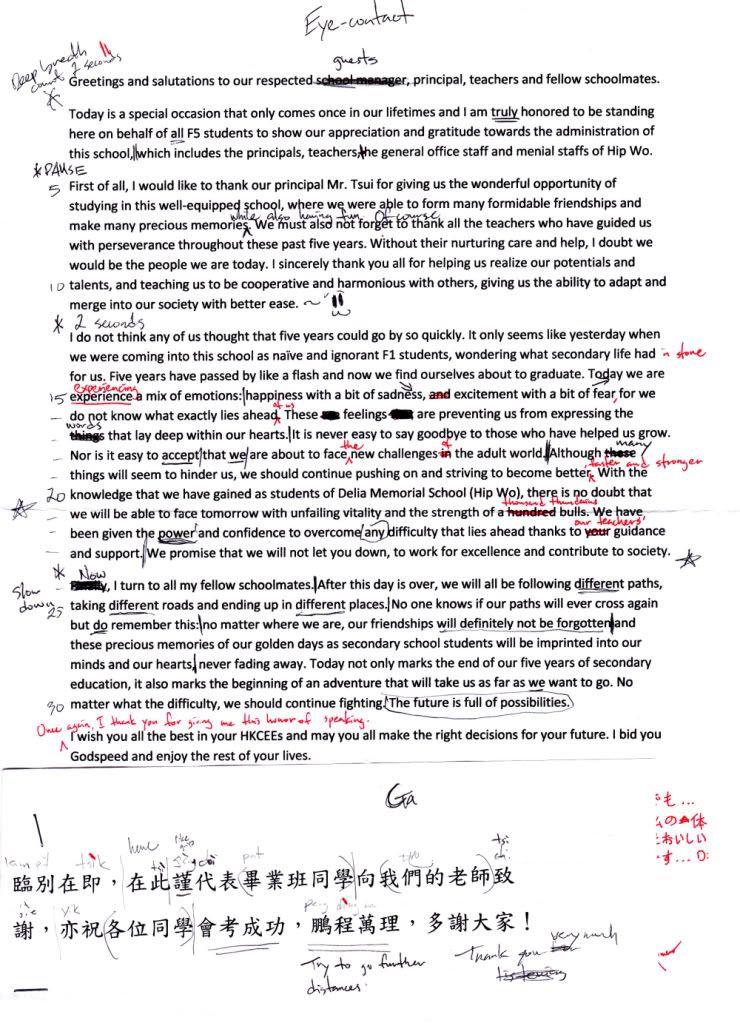 Eye-contact
Deep breath
count 2 seconds
guests
Greetings and salutations to our respected school manager, principal, teachers and fellow schoolmates.
Today is a special occasion that only comes once in our lifetimes and I am truly honored to be standing
here on behalf of all F5 students to show our appreciation and gratitude towards the administration of
this school, which includes the principals, teachers, the general office staff and menial staffs of Hip Wo.
*PAUSE
5 First of all, I would like to thank our principal Mr. Tsui for giving us the wonderful opportunity of
studying in this well-equipped school, where we were able to form many formidable friendships and
while also having fun. Of course
make many precious memories. We must also not forget to thank all the teachers who have guided us
with perseverance throughout these past five years. Without their nurturing care and help, I doubt we
would be the people we are today. I sincerely thank you all for helping us realize our potentials and
10 talents, and teaching us to be cooperative and harmonious with others, giving us the ability to adapt and
merge into our society with better ease.
* 2 seconds
I do not think any of us thought that five years could go by so quickly. It only seems like yesterday when
we were coming into this school as naïve and ignorant F1 students, wondering what secondary life had in store
for us. Five years have passed by like a flash and now we find ourselves about to graduate. Today we are
experiencing
15 experience a mix of emotions: happiness with a bit of sadness, and excitement with a bit of fear, for we
of us
do not know what exactly lies ahead. These feelings are preventing us from expressing the
words
things that lay deep within our hearts. It is never easy to say goodbye to those who have helped us grow.
the of many
Nor is it easy to accept that we are about to face new challenges in the adult world. Although these
faster and stronger
things will seem to hinder us, we should continue pushing on and striving to become better. With the
20 knowledge that we have gained as students of Delia Memorial School (Hip Wo), there is no doubt that
thousand thundering
we will be able to face tomorrow with unfailing vitality and the strength of a hundred bulls. We have
our teachers'
been given the power and confidence to overcome any difficulty that lies ahead thanks to your guidance
and support. We promise that we will not let you down, to work for excellence and contribute to society.
* Now
Slow down
Finally, I turn to all my fellow schoolmates. After this day is over, we will all be following different paths,
25 taking different roads and ending up in different places. No one knows if our paths will ever cross again
but do remember this: no matter where we are, our friendships will definitely not be forgotten and
these precious memories of our golden days as secondary school students will be imprinted into our
minds and our hearts, never fading away. Today not only marks the end of our five years of secondary
education, it also marks the beginning of an adventure that will take us as far as we want to go. No
30 matter what the difficulty, we should continue fighting. The future is full of possibilities.
Once again, I thank you for giving me this honor of speaking.
I wish you all the best in your HKCEEs and may you all make the right decisions for your future. I bid you
Godspeed and enjoy the rest of your lives.
Ga
も...
の体
おいしい
す... D:
here
臨別在即，在此謹代表畢業班同學向我們的老師致
謝，亦祝各位同學會考成功，鵬程萬理，多謝大家！
Try to go further
distances.
Thank you very much
listening